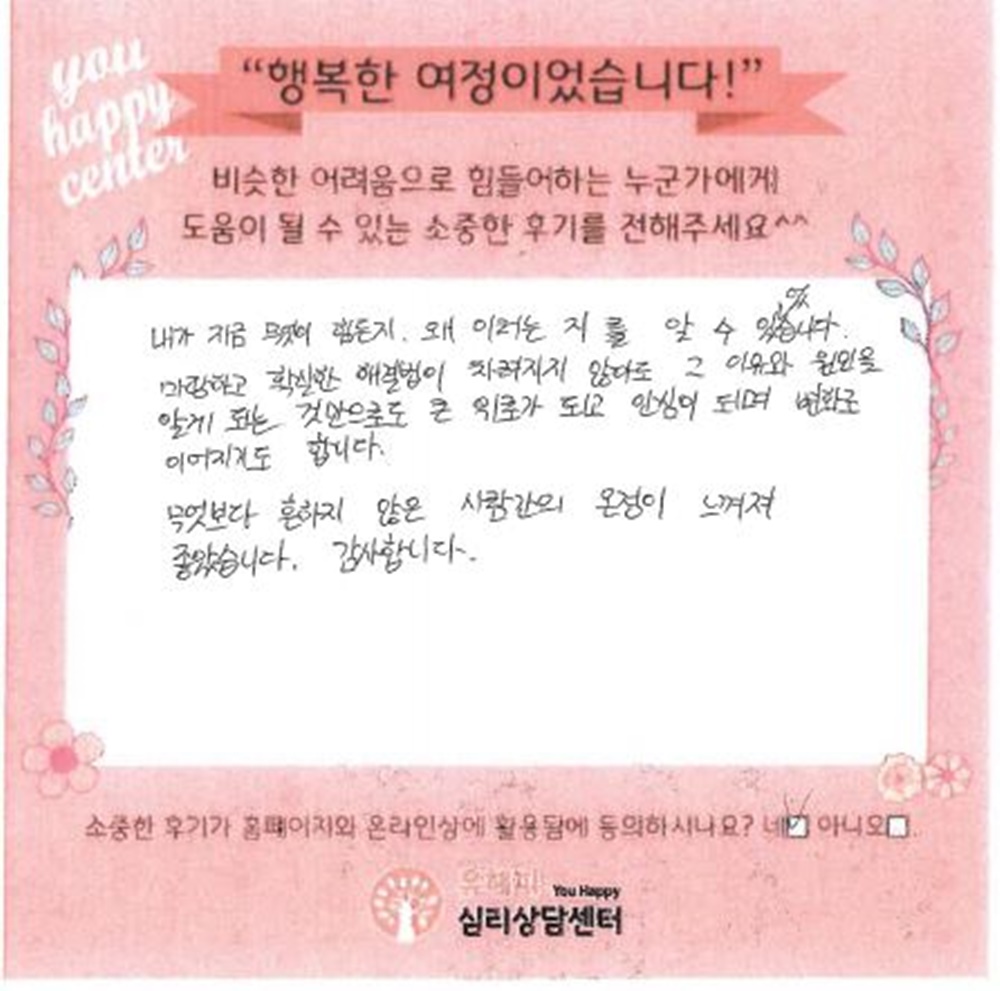 you
happy
center
“행복한 여정이었습니다!”
비슷한 어려움으로 힘들어하는 누군가에게
도움이 될 수 있는 소중한 후기를 전해주세요^^
내가 지금 무엇이 힘든지. 왜 이러는 지 를 알 수 있었습니다.
명확하고 확실한 해결법이 차려지지 않아도 그 이유와 원인을
알게 되는 것만으로도 큰 위로가 되고 안심이 되며 변화로
이어지기도 합니다.
무엇보다 흔하지 않은 사람간의 온정이 느껴져
좋았습니다. 감사합니다.
소중한 후기가 홈페이지와 온라인상에 활용됨에 동의하시나요? 네 아니오
유해피 You Happy
심리상담센터